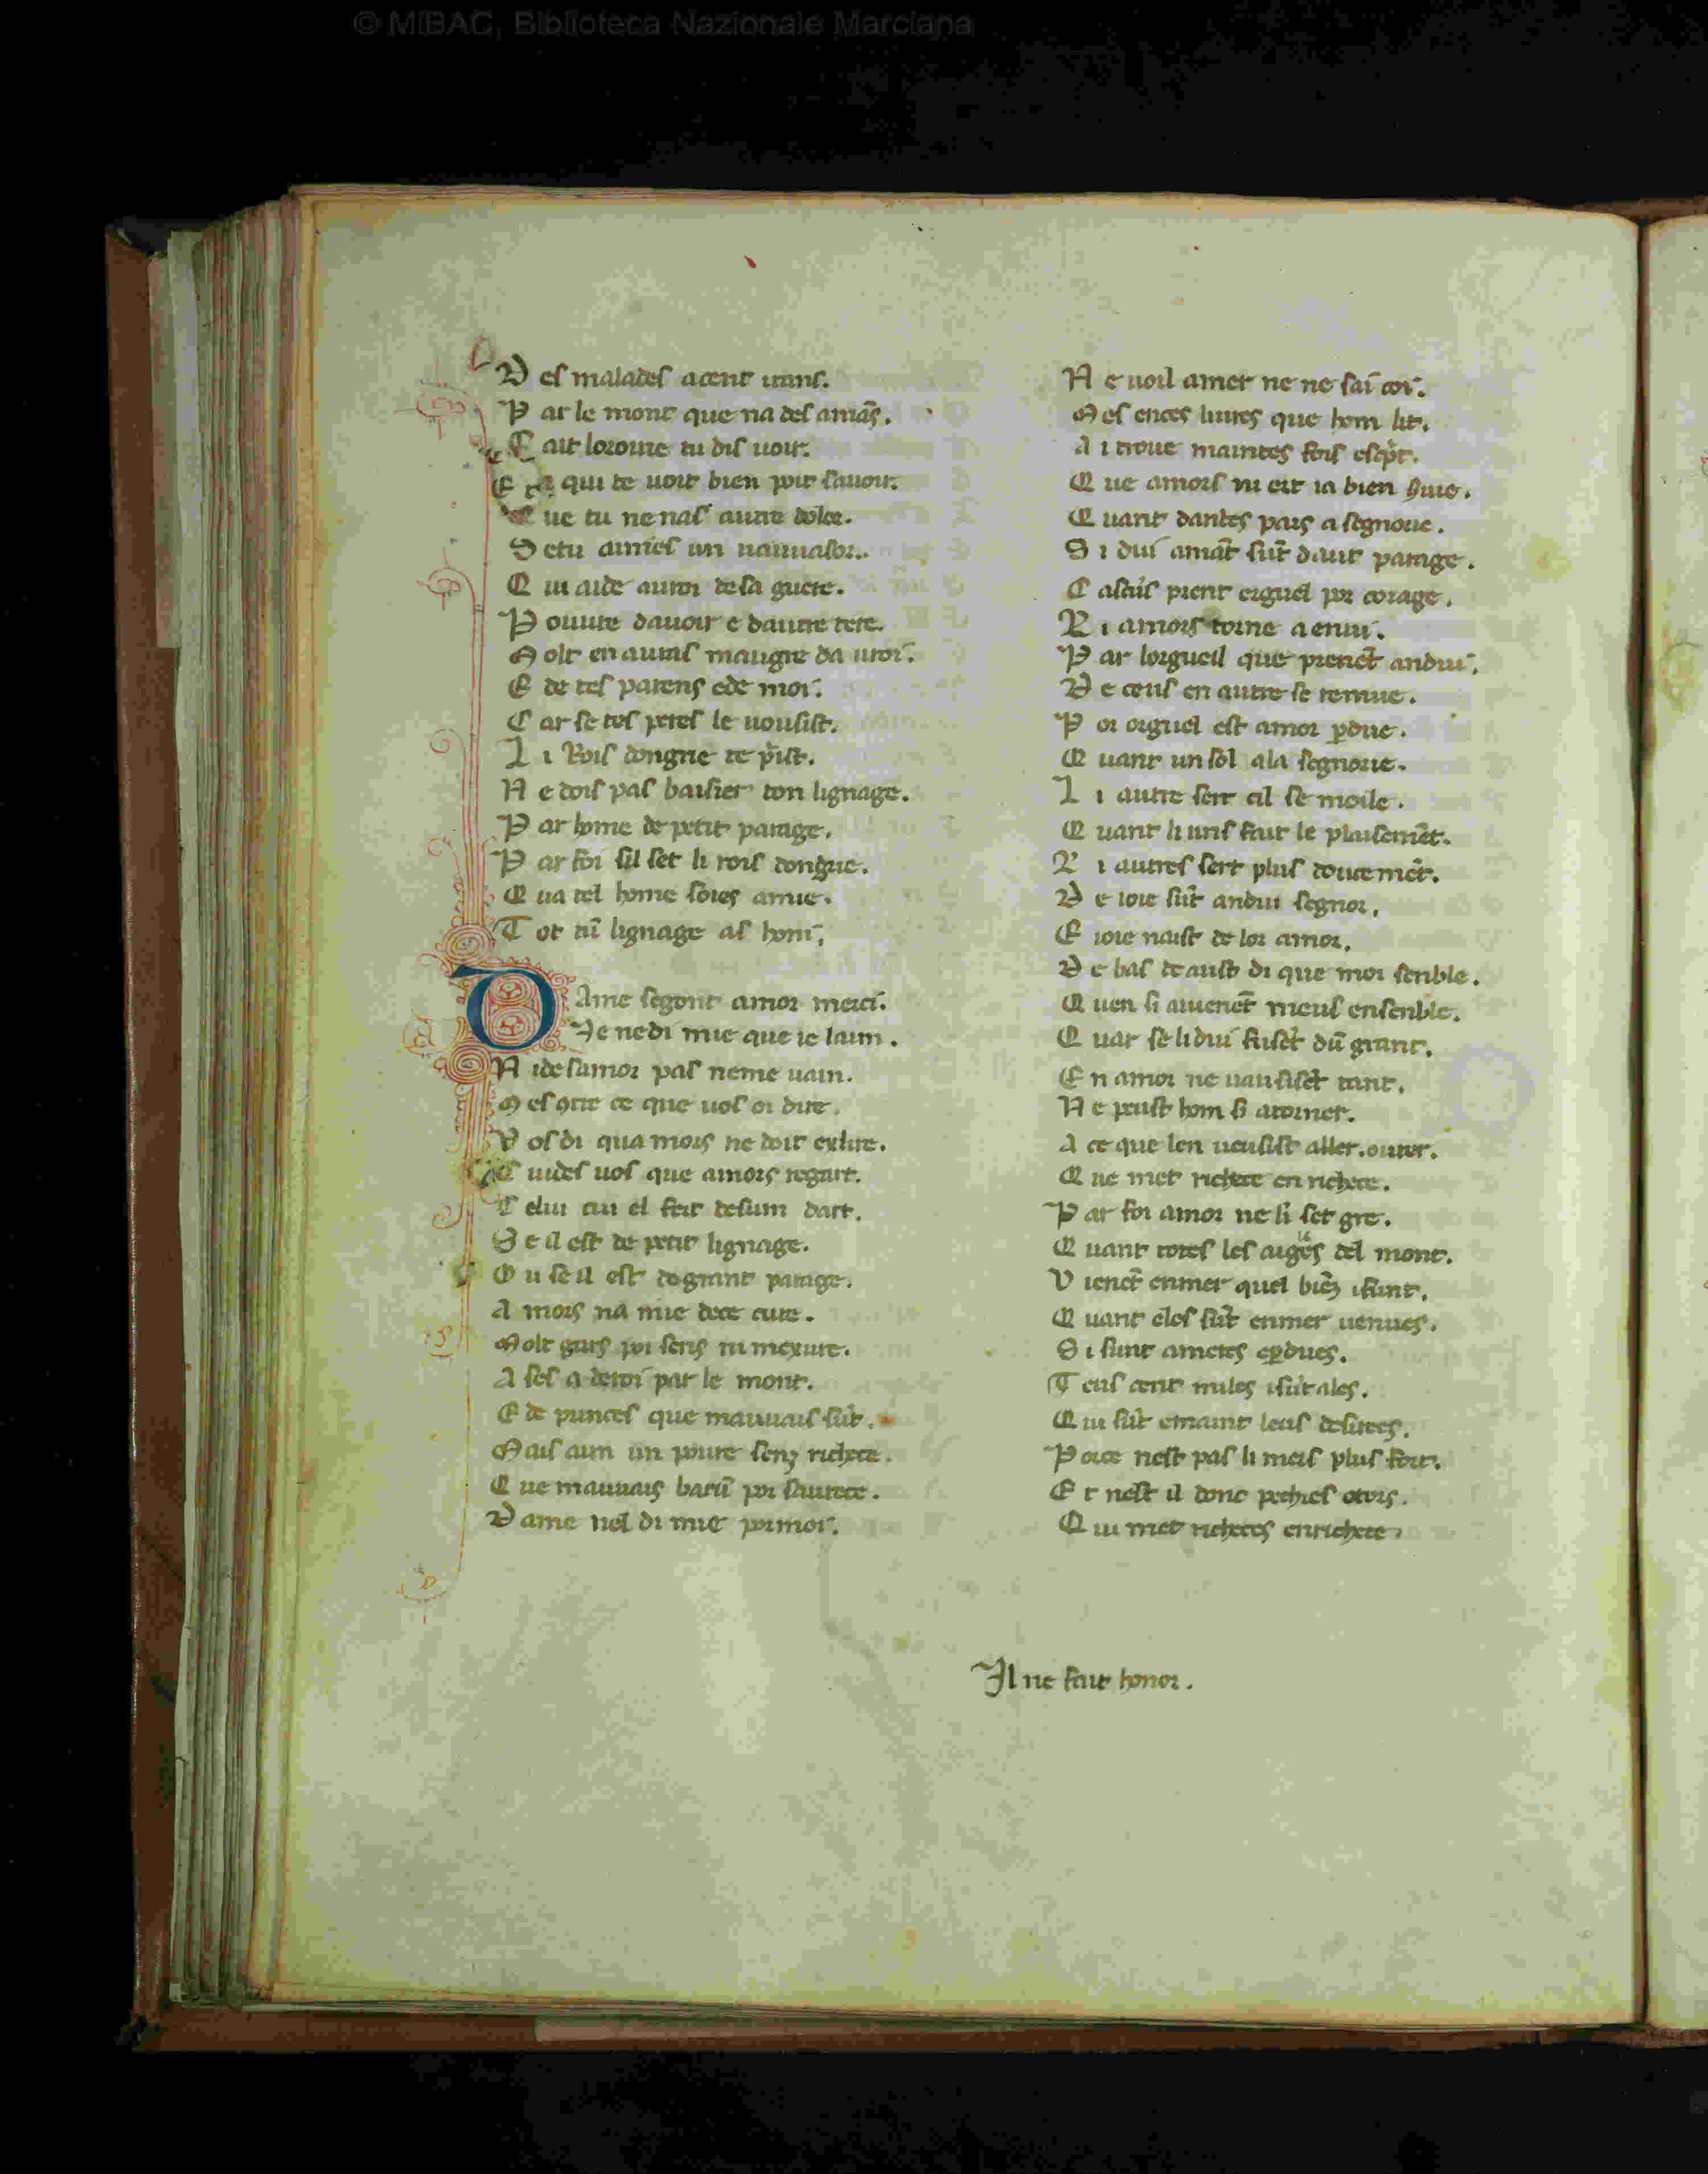 © MiBAC, Biblioteca Nazionale Marciana
D es malades a cent uans.
P ar le mont que na des amãs.
F ait lorome tu dis uoir.
E qui te uoit bien poit sauoir.
Q ue tu nenas autre dolor.
S etu aimes un uauuasor.
Q ui aide autoi de sa guere.
P ouure dauoir e dautre tere.
M olt en auras maugre da uroi.
E de tes parens ede moi.
C ar se tes peres le uousist.
L i Rois dongrie te p̃ist.
N e dois pas baisier ton lignage.
P ar home de petit parage.
P ar foi sil set li rois dongrie.
Q ua tel home soies amie.
T ot tũ lignage as honi.
D Ame segont amor merci.
Je nedi mie que ie laim.
N ide samor pas neme uam.
M es otre ce que uos oi dire.
V os di quamors ne doit exlire.
C uides uos que amors regart.
C elui cui el feit desum dart.
S e il est de petit lignage.
O u se il est de grant parage.
A mors na mie dece cure.
M olt gars poi sens ni mexure.
A ses a detoi par le mont.
E de punces que mauuais sũt.
M ais aim un poure senz richece.
Q ue mauuais barũ poi sautece.
D ame nel di mie por moi.
N e uoil amer ne ne sai coi.
M es ences liures que hom lit.
A i troue maintes fois esc̃pt.
Q ue amors ni ert ia bien 9uie.
Q uant dantes pars a segnorie.
S i dui amãt sũt daut parage.
C ascũs prent orguel por corage.
L i amors torne a enui.
P ar lorgueil que prenẽt andui.
D e ceus en autre se remue.
P or orguel est amor p̱due.
Q uant un sol ala segnorie.
L i autre sert cil se moile.
Q uant li uns fait le plaisemẽt.
L i autres sert plus doucemẽt.
D e ioie sũt andui segnor.
E ioie naist de lor amor.
D e bas de aust di que moi senble.
Q uen si auenẽt meus ensenble.
Q uar se li dui fusẽt dũ grant.
E n amor ne uausisẽt tant.
N e peust hom si atorner.
A ce que len ueusist aller. outer.
Q ue met richece en richece.
P ar foi amor ne li set gre.
Q uant totes les aigues del mont.
V ienẽt enmer quel biẽz ifunt.
Q uant eles sũt enmer uenues.
S i sunt ameres ep̱dues.
T eus cent miles isũt ales.
Q ui sũt emaint leus desirees.
P orce nest pas li meis plus fort.
E t nest il donc pechies otors.
Q ui met richeces enrichece.
Il ne fait honor.